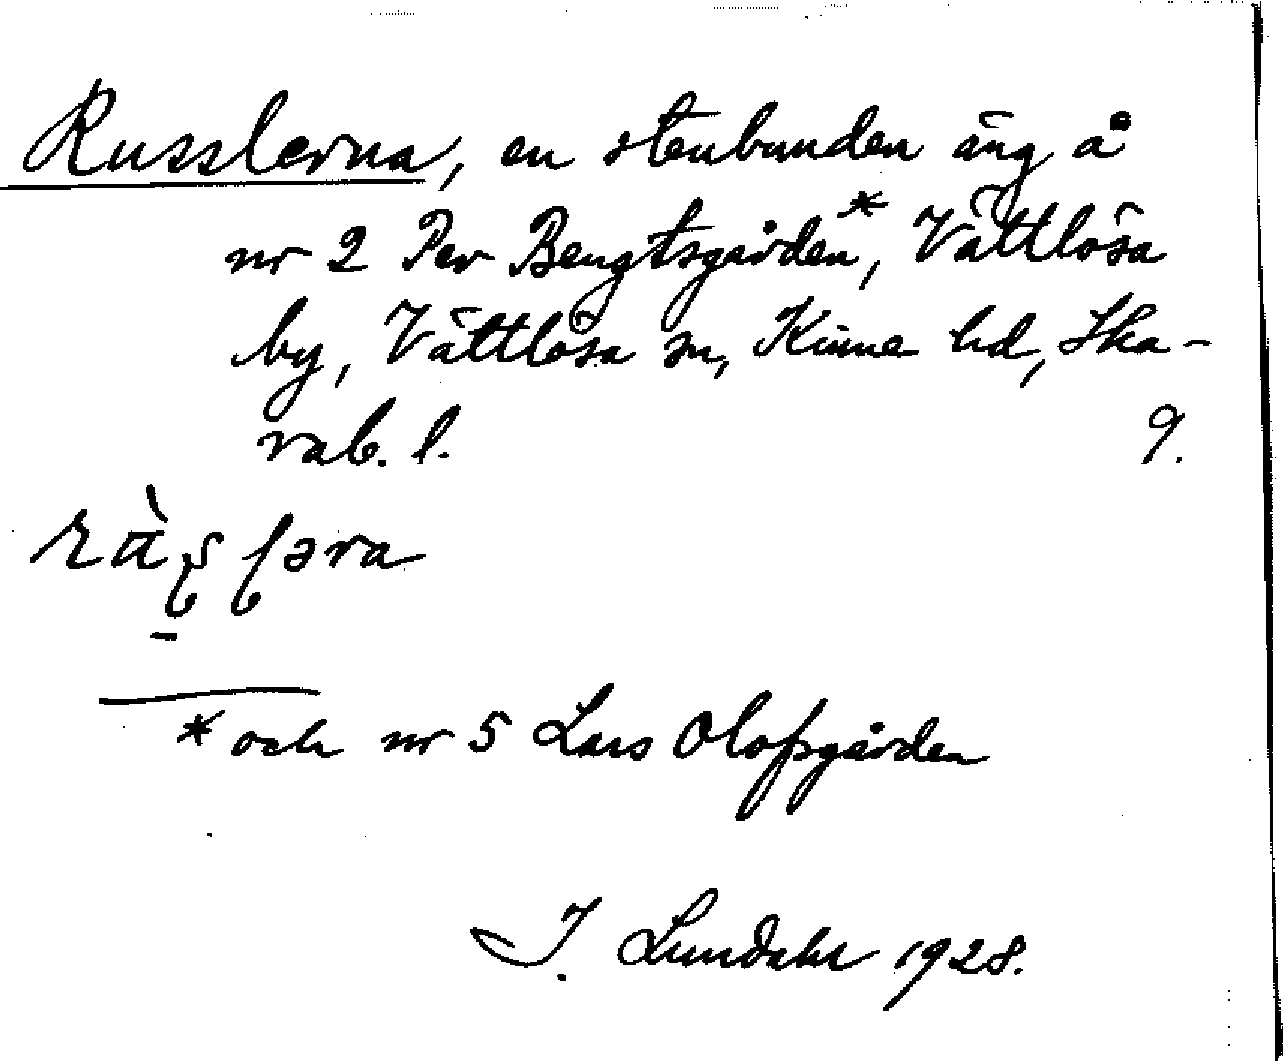 Russlerna, en stenbunden äng å
nr 2 Per Bengtsgården*, Vättlösa
by, Vättlösa sn, Kinne hd, Ska-
rab. l. 9.
* och nr 5 Lars Olofsgården
I. Lundahl 1928.